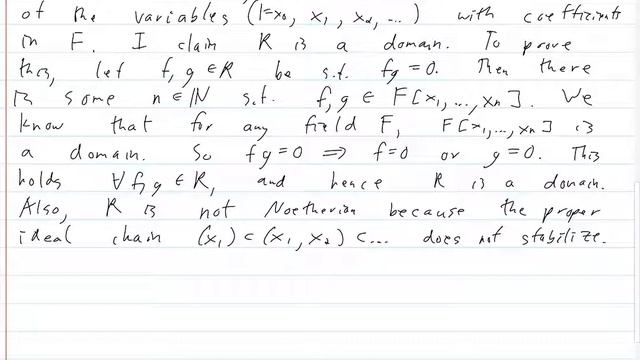 of the variables (1=x₀, x₁, x₂, ...) with coefficients
in F. I claim R is a domain. To prove
this, let f, g ∈ R be s.t. fg = 0. Then there
is some n ∈ ℕ s.t. f, g ∈ F[x₁, ..., xₙ]. We
know that for any field F, F[x₁, ..., xₙ] is
a domain. So fg = 0 ⟹ f = 0 or g = 0. This
holds ∀ f, g ∈ R, and hence R is a domain.
Also, R is not Noetherian because the proper
ideal chain (x₁) ⊂ (x₁, x₂) ⊂ ... does not stabilize.